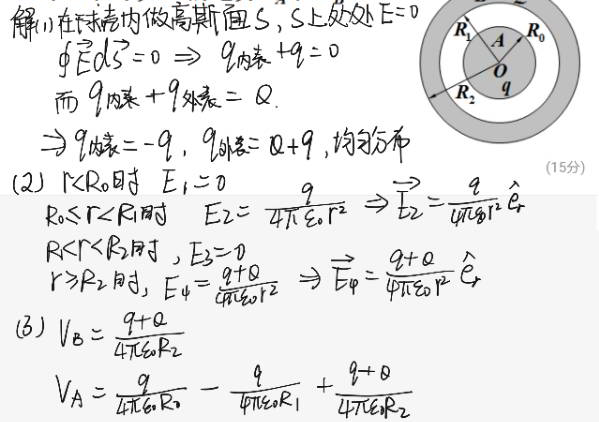 解(1)在球壳内做高斯面S,S上处处E=0
∮E⃗dS⃗=0 ⇒ q内表+q=0
而 q内表+q外表=Q.
⇒q内表=-q, q外表=Q+q,均匀分布
R₁
A
R₀
O
q
R₂
(15分)
(2) r<R₀时 E₁=0
R₀≤r<R₁时 E₂=q/(4πε₀r²) ⇒ E⃗₂=q/(4πε₀r²) êᵣ
R₁<r<R₂时, E₃=0
r≥R₂时, E₄=(q+Q)/(4πε₀r²) ⇒ E⃗₄=(q+Q)/(4πε₀r²) êᵣ
(3) V_B=(q+Q)/(4πε₀R₂)
V_A=q/(4πε₀R₀) - q/(4πε₀R₁) + (q+Q)/(4πε₀R₂)